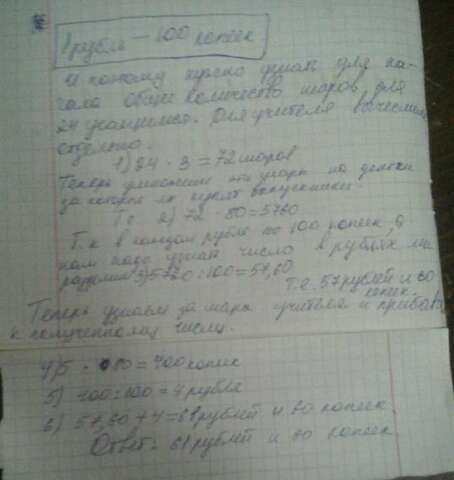 1 рубль — 100 копеек
И поэтому нужно узнать для на-
чала общее количество шаров для
24 учащимся. Для учителя вычислим
отдельно.
1) 24 · 3 = 72 шаров
Теперь умножим эти шары на деньги
за которые их купят выпускники.
Т.е. 2) 72 · 80 = 5760
Т.к в каждом рубле по 100 копеек, а
нам надо узнать число в рублях мы
разделим 3) 5760 : 100 = 57,60
Т.е. 57 рублей и 60
копеек.
Теперь узнаем за шары учителя и прибавим
к полученному числу.
4) 5 · 80 = 400 копеек
5) 400 : 100 = 4 рубля
6) 57,60 + 4 = 61 рублей и 60 копеек
Ответ: 61 рублей и 60 копеек